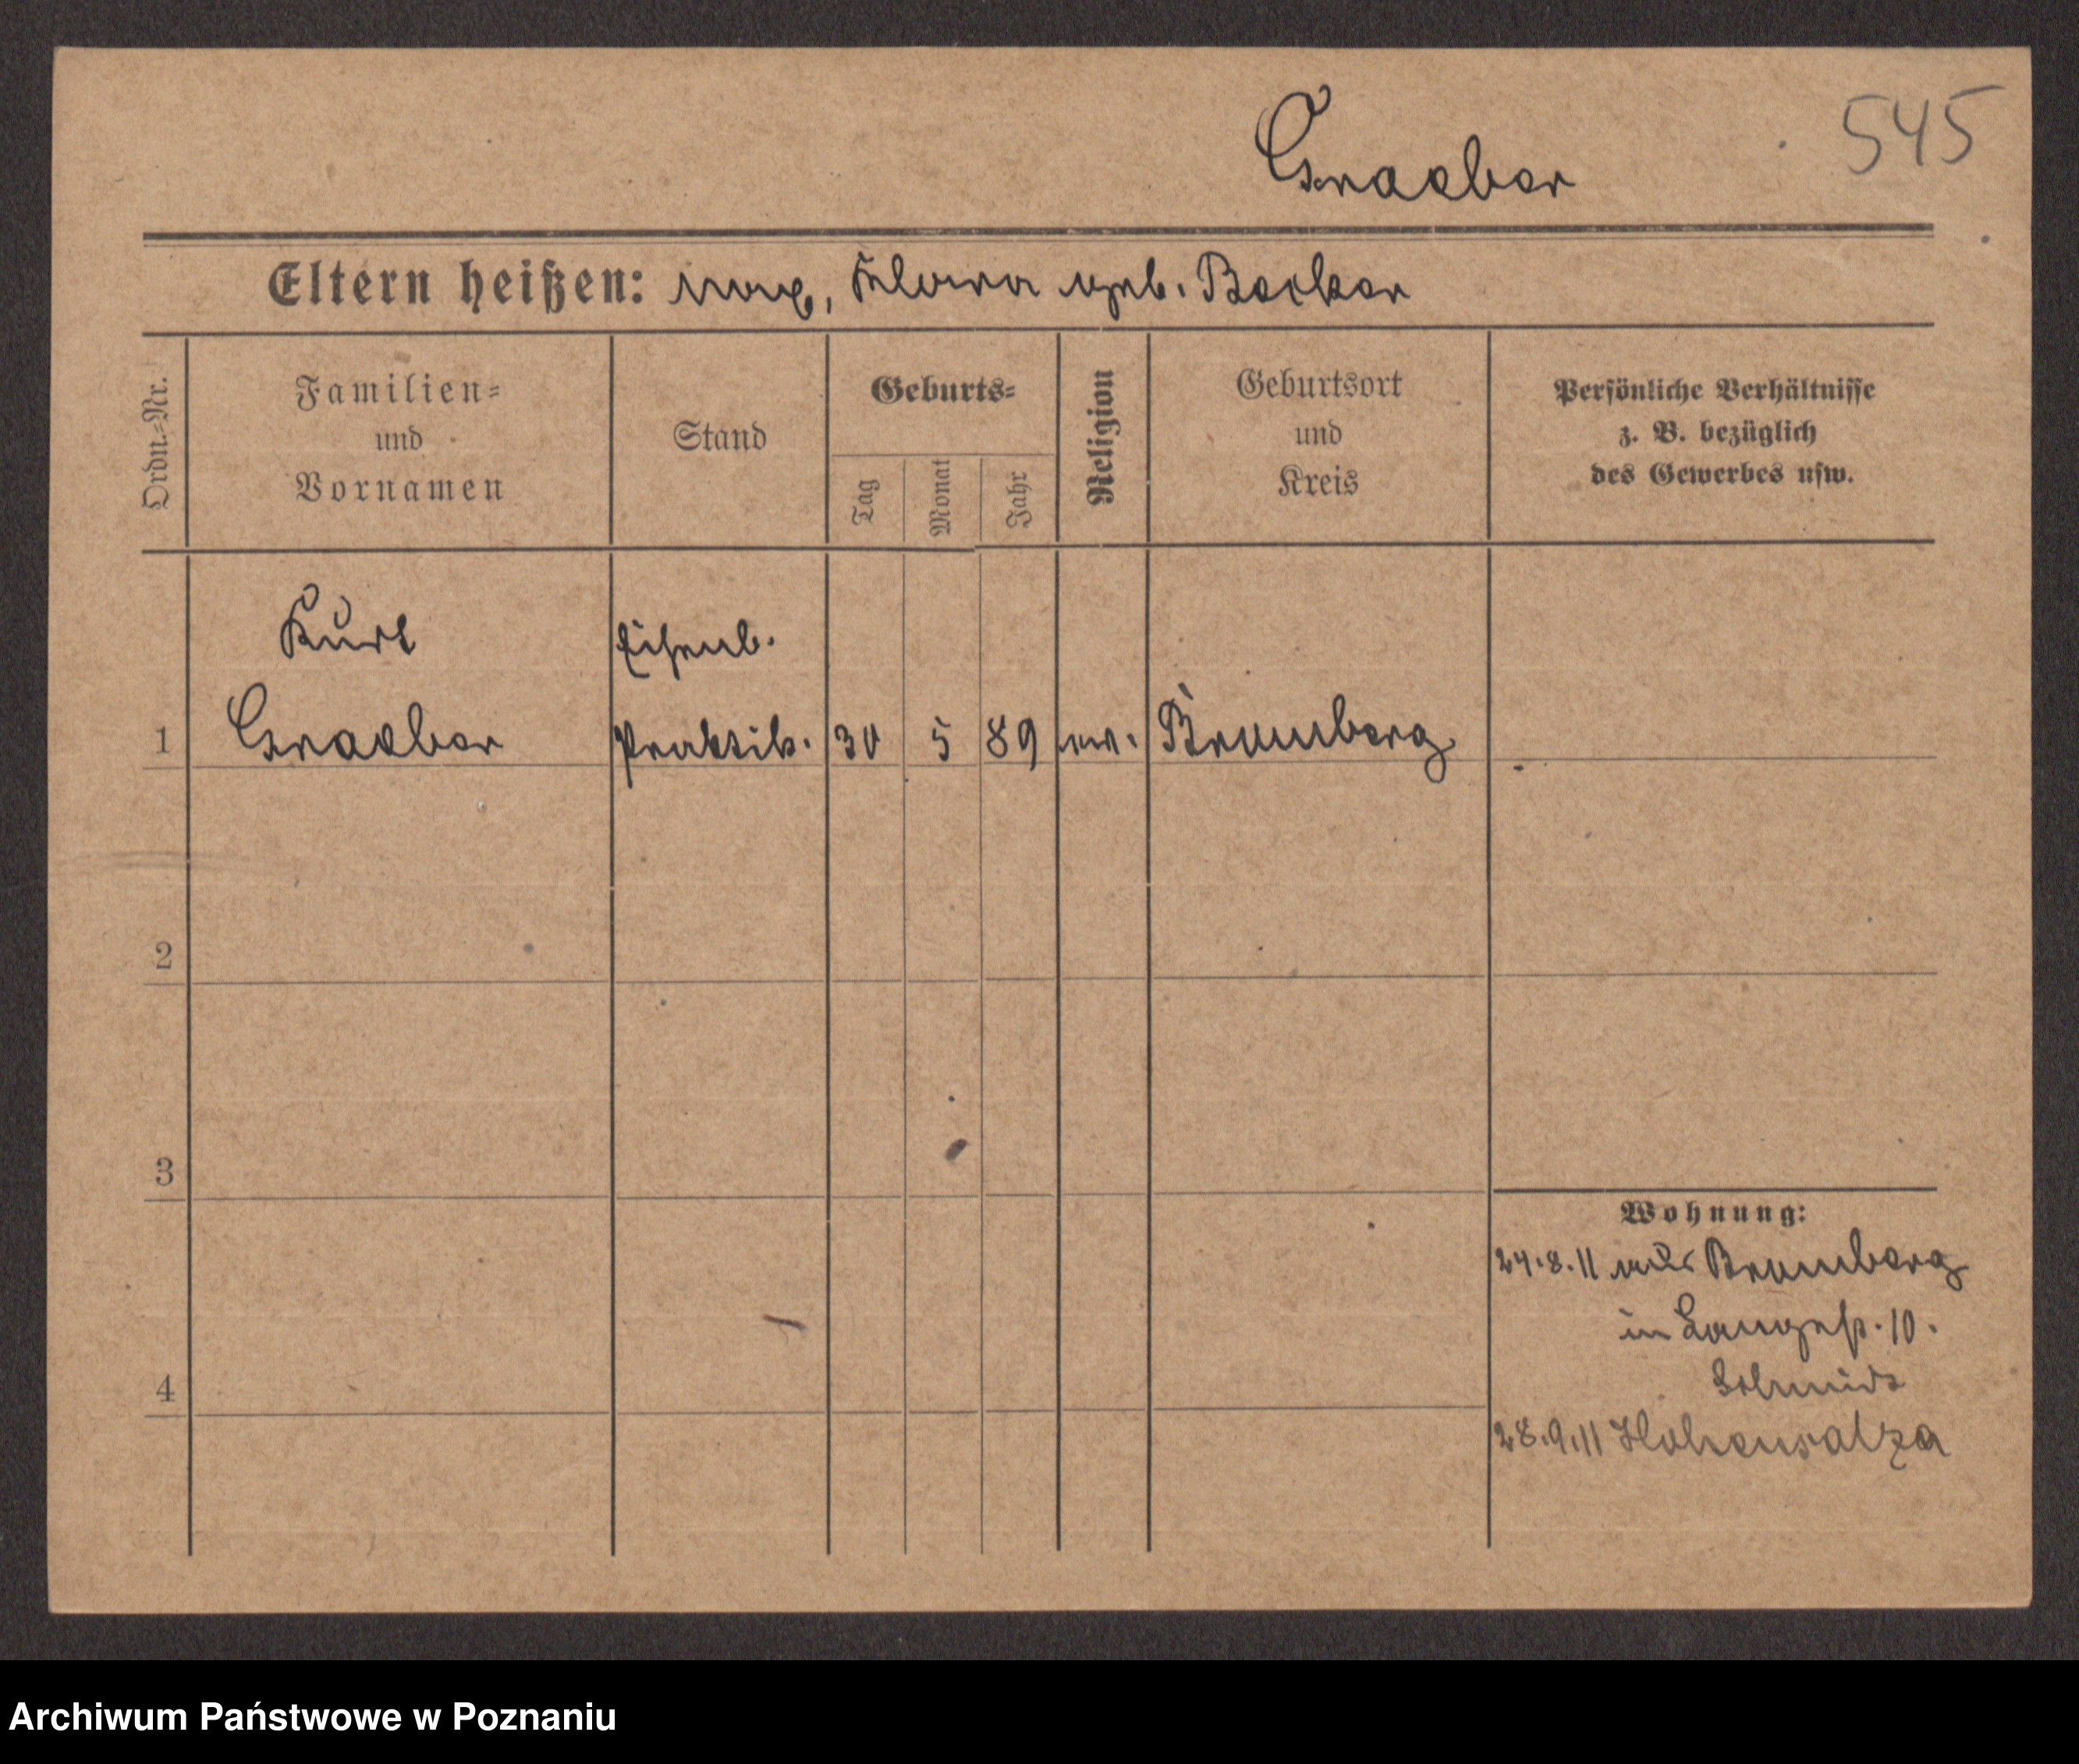 545
Graeber
Eltern heißen: Max, Klara geb. Becker
Ordn.-Nr.
Familien- und Vornamen
Stand
Geburts-
Tag
Monat
Jahr
Religion
Geburtsort und Kreis
Persönliche Verhältnisse
z. B. bezüglich
des Gewerbes usw.
Kurt Eisenb.
1 Graeber Praktik. 30 5 89 ev. Bromberg
2
3
Wohnung:
24.8.11 aus Bromberg
in Langestr. 10.
Schmidt
4
28.9.11 Hohensalza
Archiwum Państwowe w Poznaniu